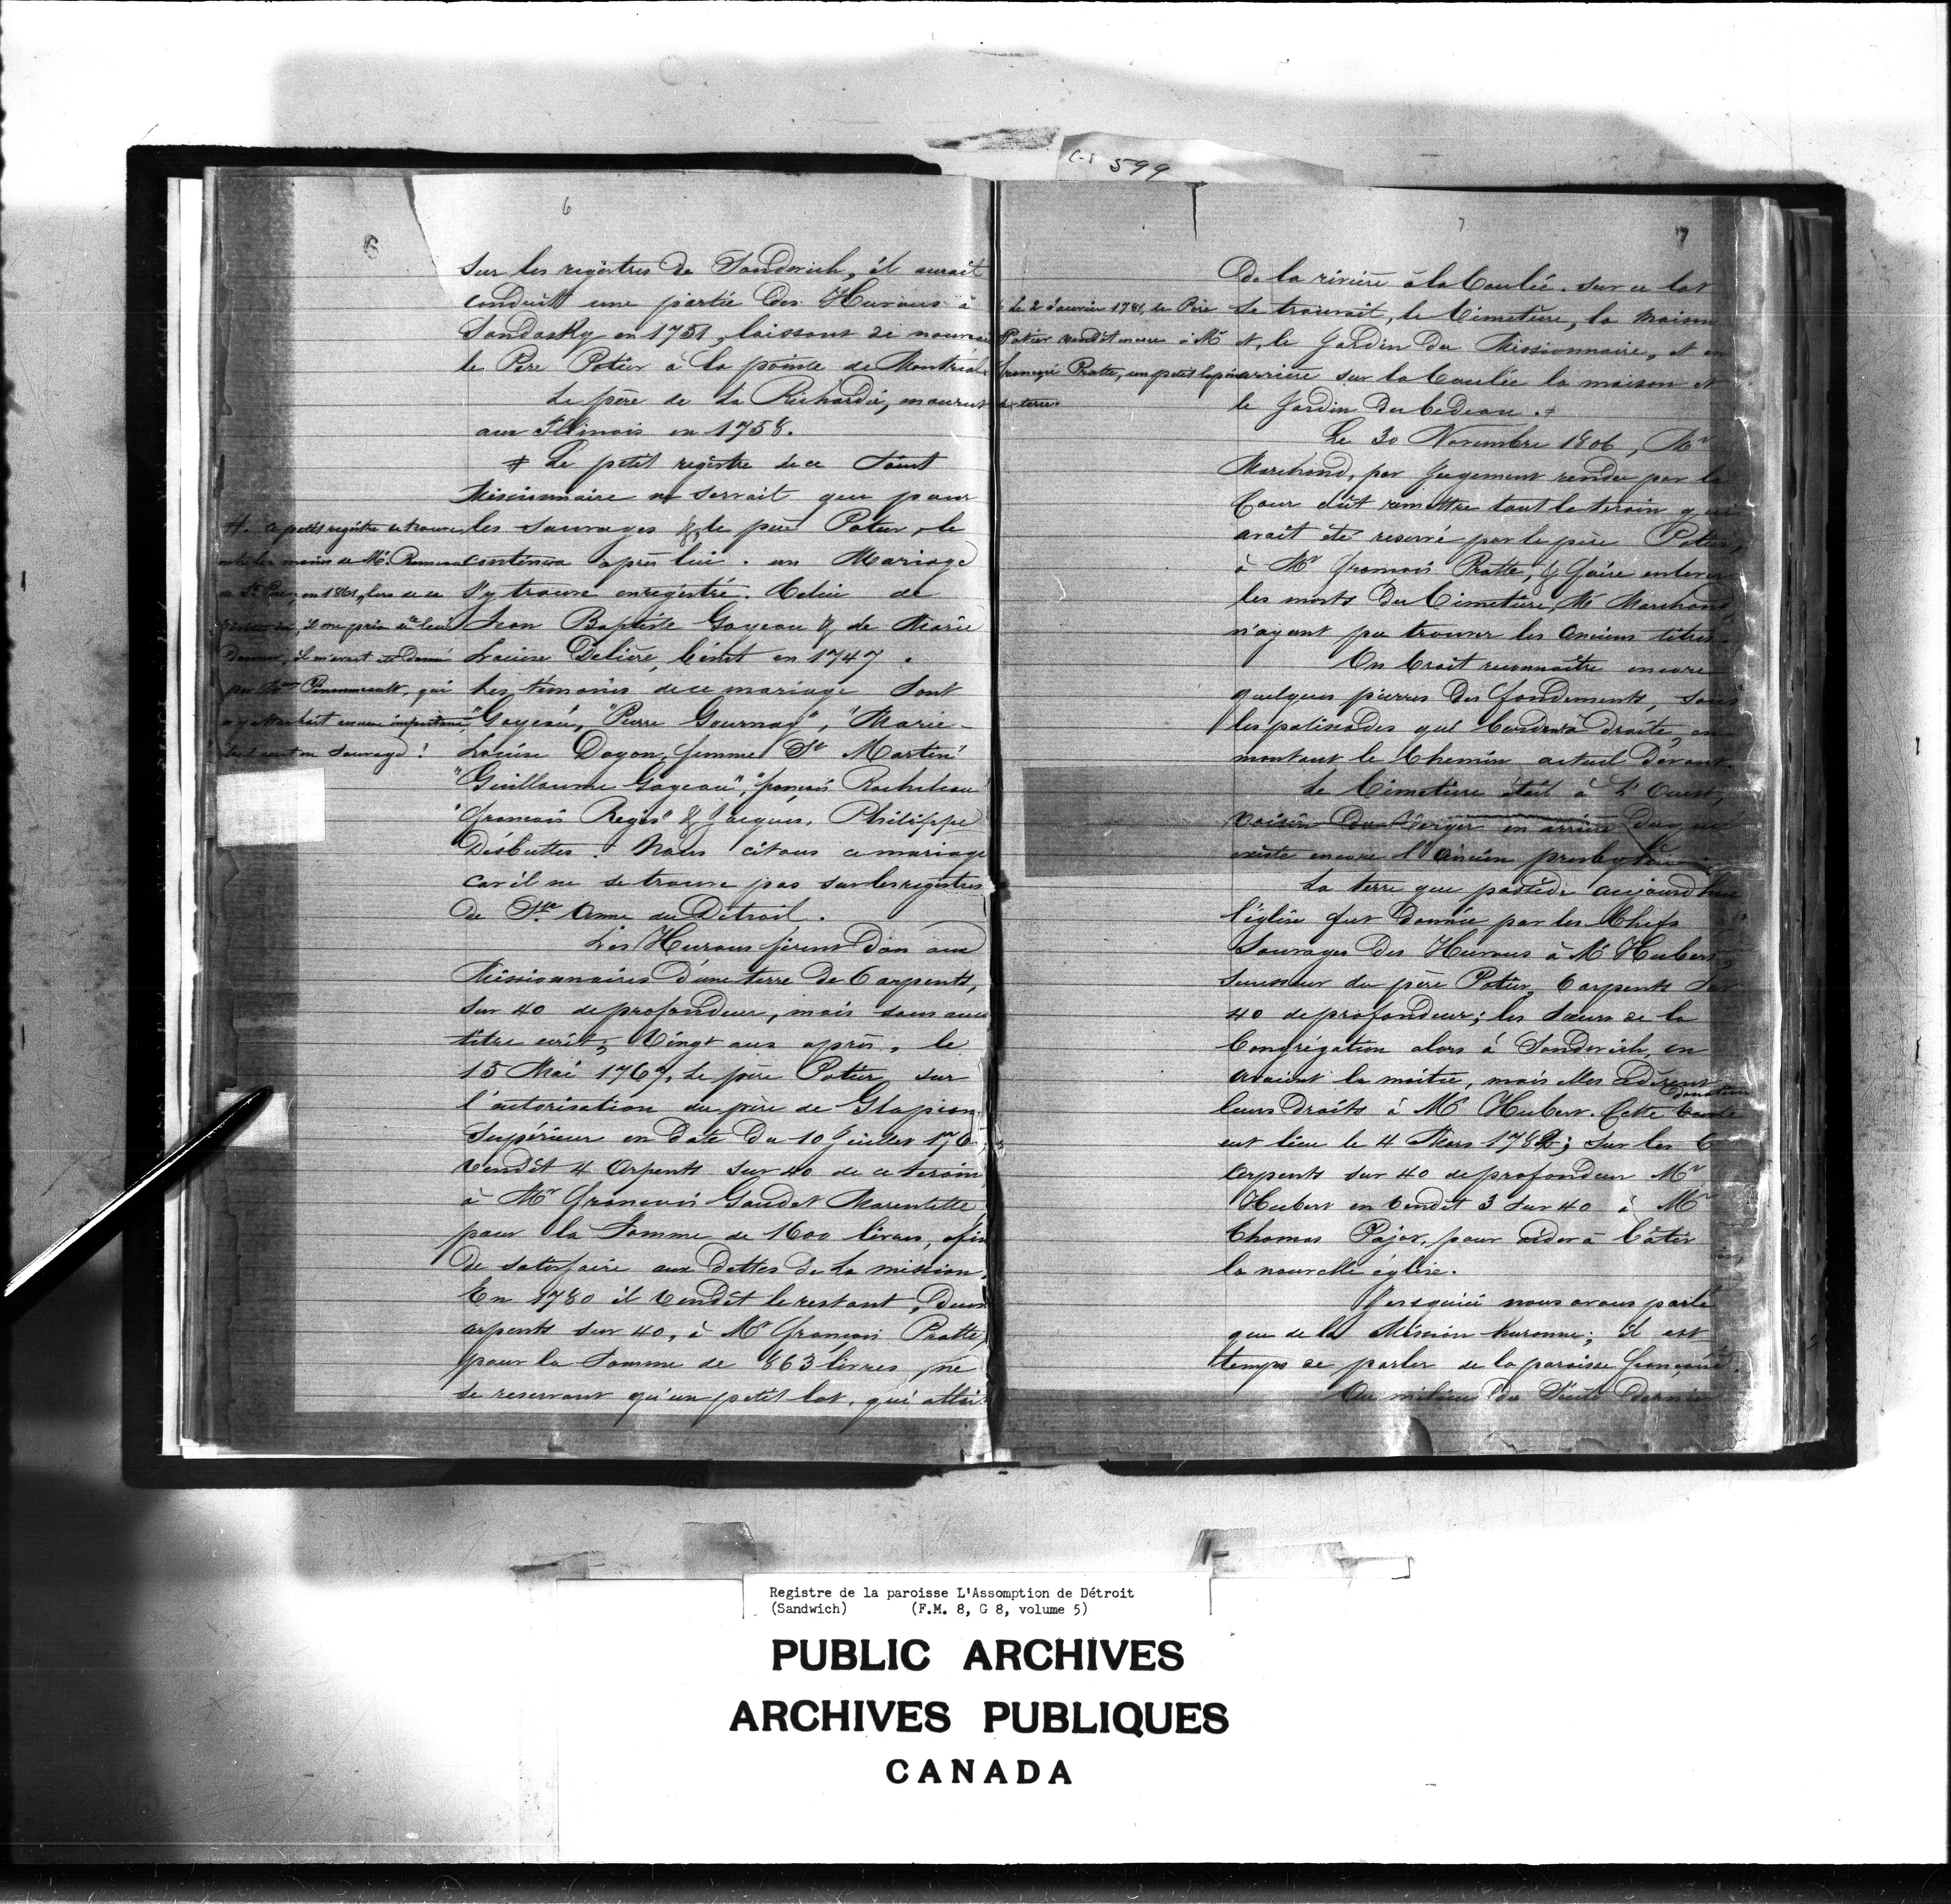 C-8 599
6
6
sur les registres de Sandwich, il aurait
conduit une partie des Hurons à
Sandosky en 1751, laissant de nouveau
le Père Potier à la pointe de Montréal.
Le père de La Richardie, mourut
aux Illinois en 1758.
# Le petit registre de ce Saint
Missionnaire ne servait que pour
les sauvages & le père Potier, le
continua après lui. un Mariage
s'y trouve enregistré. Celui de
Jean Baptiste Goyeau & de Marie
Louise Delière, c'était en 1747.
Les témoins de ce mariage sont
"Goyeau," "Pierre Gournay", "Marie-
Louise Dayon, femme St Martin"
"Guillaume Goyeau", "françois Rocheleau"
"françois Regis" & Jacques, Philippe
Desbuttes. Nous citons ce mariage
car il ne se trouve pas sur les registres
de Ste Anne du Détroit.
Les Hurons firent don aux
Missionnaires d'une terre de 6 arpents,
sur 40 de profondeur, mais sans aucun
titre écrit; Vingt ans après, le
15 Mai 1767, Le père Potier sur
l'autorisation du père de Glapion,
Supérieur en date du 10 Juillet 176
vendit 4 Arpents sur 40 de ce terrain
à Mr François Gaudet Marentette
pour la Somme de 1600 livres, afin
de satisfaire aux dettes de la mission.
En 1780 il vendit le restant, deux
arpents sur 40, à Mr François Pratte,
pour la Somme de 863 livres, ne
se reservant qu'un petit lot, qui allait
#. Ce petit registre se trouve
entre les mains de Mr
en 1861, lors de
par Pennereault, qui
y attachait aucune importance
sauvage!
7
7
de la rivière à la Coulée. Sur ce lot
se trouvait, le Cimetière, la maison
et, le Jardin du Missionnaire, et en
arrière sur la Coulée la maison et
le Jardin du bedeau. ‡
Le 30 Novembre 1806, Mr
Marchand, par Jugement rendu par la
Cour dût remettre tout le terrain qui
avait été reservé par le père Potier,
à Mr françois Pratte, & faire enlever
les morts du Cimetière, Mr Marchand
n'ayant pu trouver les anciens titres.
On Croit reconnaître encore
quelques pierres des fondements, sous
les palissades qui bordent à droite, en
montant le Chemin actuel devant.
Le Cimetière était à L'Ouest,
voisin du Verger en arrière duquel
existe encore l'ancien presbytère.
La terre que possède aujourd'hui
l'église fut donnée par les Chefs
Sauvages des Hurons à Mr Hubert,
successeur du père Potier, 6 arpents sur
40 de profondeur; les Sœurs de la
Congrégation alors à Sandwich, en
avaient la moitié, mais elles cédèrent
leurs droits à Mr Hubert. Cette vente
donation
eut lieu le 4 Mars 1782; sur les 6
arpents sur 40 de profondeur Mr
Hubert en vendit 3 sur 40 à Mr
Thomas Pajot, pour aider à bâtir
la nouvelle église.
Jusquici nous avons parlé
que de la Mission huronne; il est
temps de parler de la paroisse française.
Au milieu du Siècle dernier
‡ Le 2 Janvier 1781, le Père
Potier vendit encore à Mr
françois Pratte, un petit lopin
de terre.
Registre de la paroisse L'Assomption de Détroit
(Sandwich) (F.M. 8, G 8, volume 5)
PUBLIC ARCHIVES
ARCHIVES PUBLIQUES
CANADA